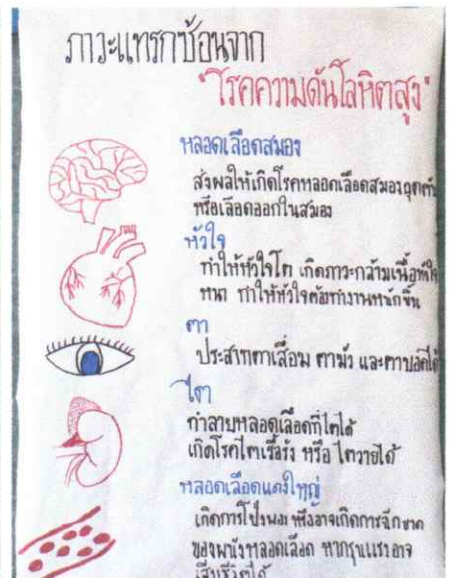 ภาวะแทรกซ้อนจาก
"โรคความดันโลหิตสูง"
หลอดเลือดสมอง
ส่งผลให้เกิดโรคหลอดเลือดสมองอุดตัน
หรือเลือดออกในสมอง
หัวใจ
ทำให้หัวใจโต เกิดภาวะกล้ามเนื้อหัวใจ
หนา ทำให้หัวใจต้องทำงานหนักขึ้น
ตา
ประสาทตาเสื่อม ตามัว และตาบอดได้
ไต
ทำลายหลอดเลือดที่ไตได้
เกิดโรคไตเรื้อรัง หรือ ไตวายได้
หลอดเลือดแดงใหญ่
เกิดการโป่งพอง หรืออาจเกิดการฉีกขาด
ของผนังหลอดเลือด หากรุนแรงอาจ
เสียชีวิตได้